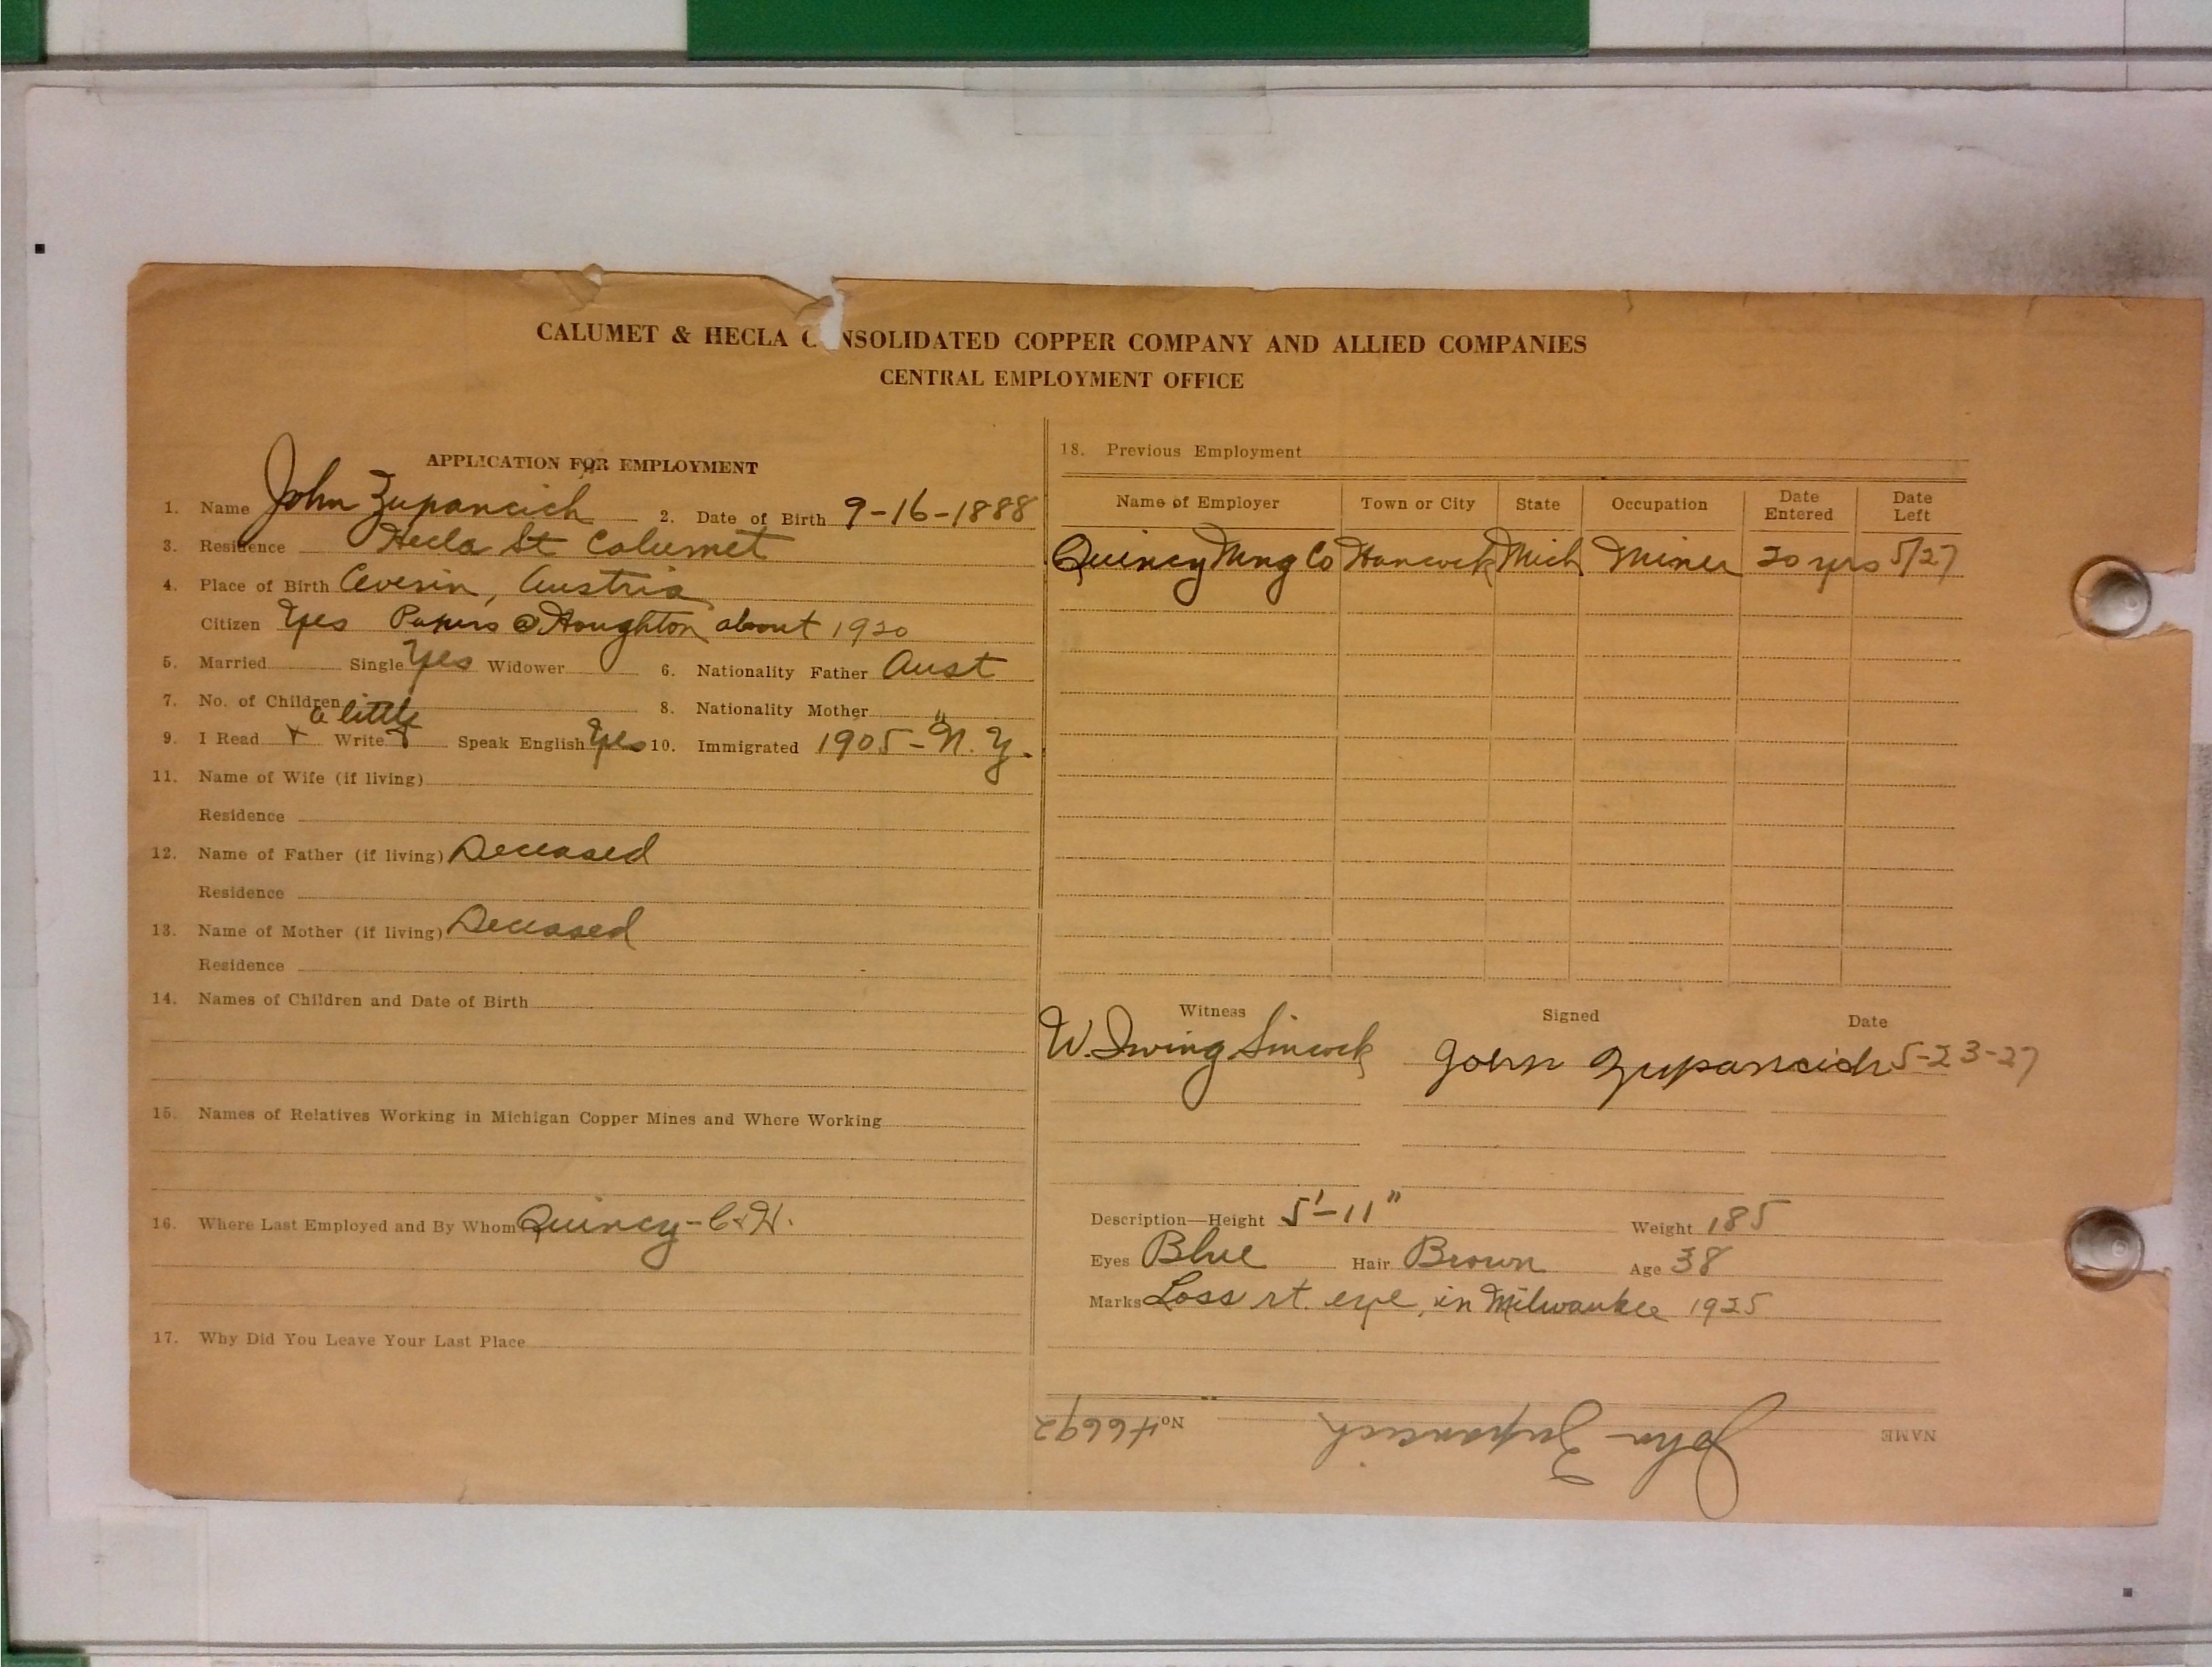 CALUMET & HECLA C NSOLIDATED COPPER COMPANY AND ALLIED COMPANIES
CENTRAL EMPLOYMENT OFFICE
APPLICATION FOR EMPLOYMENT
1. Name John Zupancich 2. Date of Birth 9-16-1888
3. Residence Hecla St Calumet
4. Place of Birth Averin, Austria
Citizen Yes Papers @ Houghton about 1920
5. Married Single Yes Widower 6. Nationality Father Aust
7. No. of Children 8. Nationality Mother "
a little
9. I Read + Write + Speak English Yes 10. Immigrated 1905-N.Y.
11. Name of Wife (if living)
Residence
12. Name of Father (if living) Deceased
Residence
13. Name of Mother (if living) Deceased
Residence
14. Names of Children and Date of Birth
15. Names of Relatives Working in Michigan Copper Mines and Where Working
16. Where Last Employed and By Whom Quincy-C+H.
17. Why Did You Leave Your Last Place
18. Previous Employment
Name of Employer Town or City State Occupation Date Entered Date Left
Quincy Mng Co Hancock Mich Miner 20 yrs 5/27
Witness Signed Date
W. Irving Simcock John Zupancich 5-23-27
Description—Height 5'-11" Weight 185
Eyes Blue Hair Brown Age 38
Marks Loss rt. eye, in Milwaukee 1925
NAME John Zupancich No 46692